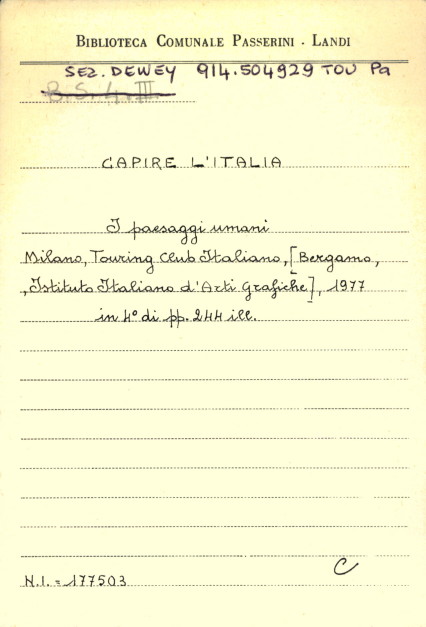 BIBLIOTECA COMUNALE PASSERINI - LANDI
SEZ. DEWEY 914.504929 TOU Pa
B.S. 4. III.
CAPIRE L'ITALIA
I paesaggi umani
Milano, Touring Club Italiano, [Bergamo,
Istituto Italiano d'Arti Grafiche], 1977
in 4° di pp. 244 ill.
C
N.I. = 177503